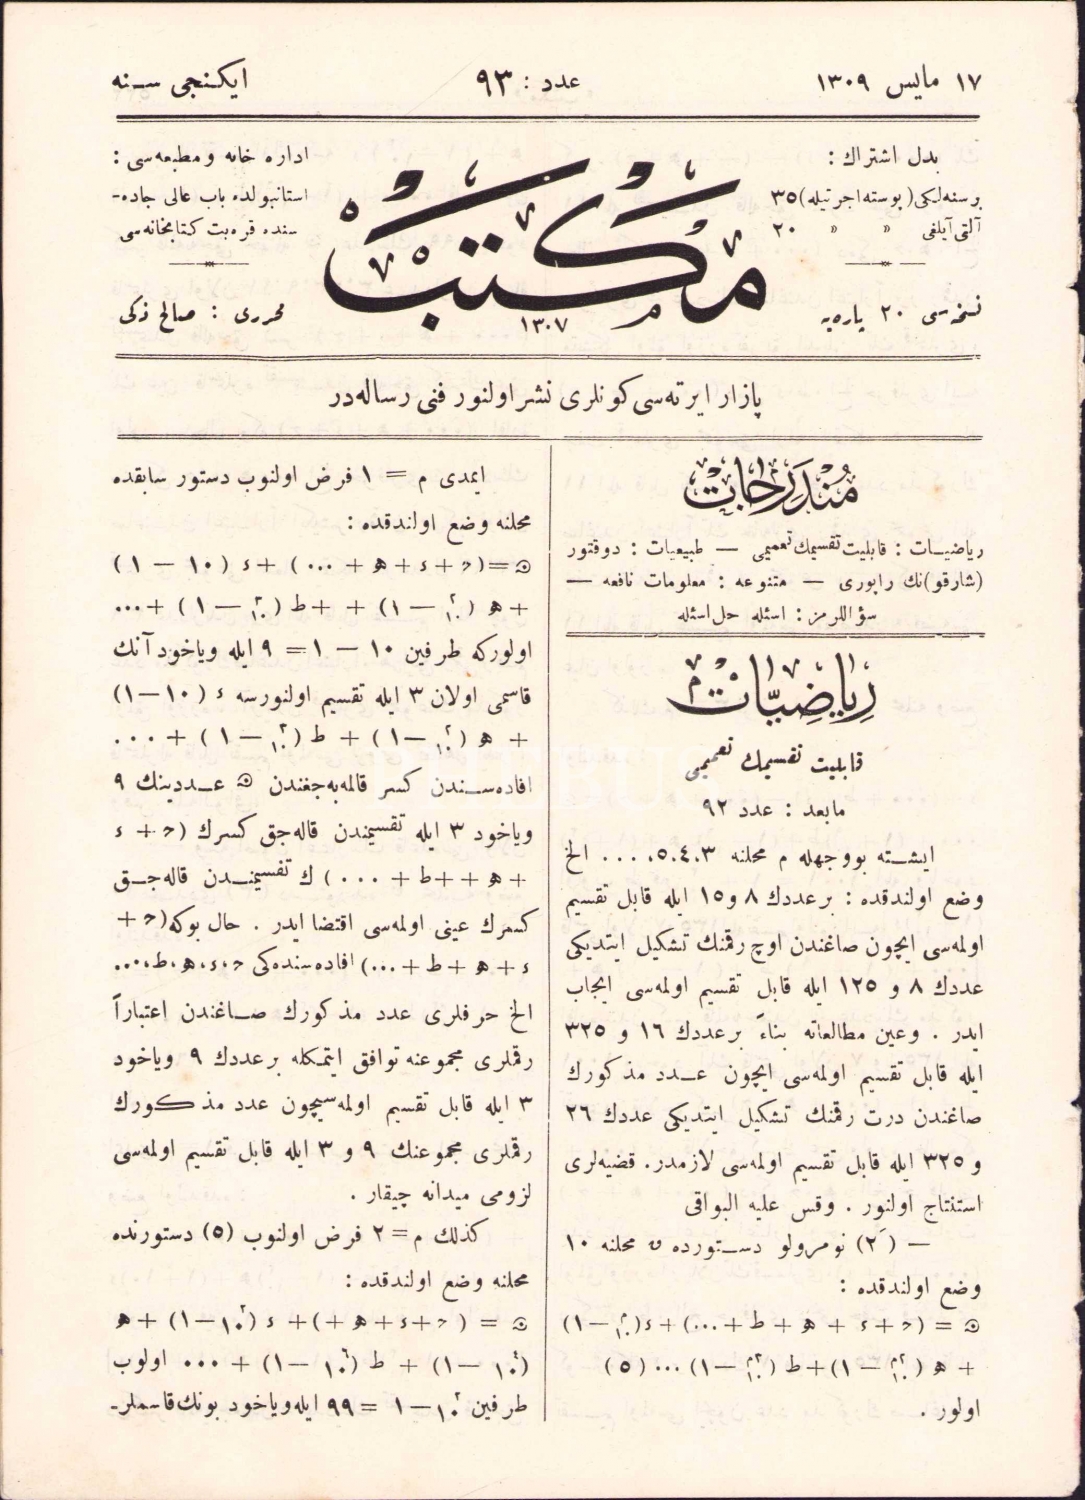 ١٧ مايس ١٣٠٩
عدد : ٩٣
ايكنجى سنه
بدل اشتراك :
برسنه‌لكى (پوسته اجرتيله) ٣٥
آلتى آيلغى » » ٢٠
نسخه‌سى ٢٠ پاره‌يه
مكتب
١٣٠٧
اداره خانه ومطبعه‌سى :
استانبولده باب عالى جاده‌-
سنده قره‌بت كتابخانه‌سى
محررى : صالح ذكى
پازار ايرته‌سى كونلرى نشر اولنور فنى رساله‌در
مُندَرِجات
رياضيات : قابليت تقسيمك تعميمى — طبيعيات : دوقتور
(شارقو)نك راپورى — متنوعه : معلومات نافعه —
سؤاللرمز : اسئله حل اسئله
رياضِيّات
قابليت تقسيمك تعميمى
مابعد : عدد ٩٢
ايشته بووجهله م محلنه ٣، ٤، ٥، .... الخ
وضع اولندقده : برعددك ٨ و١٥ ايله قابل تقسيم
اولمه‌سى ايچون صاغندن اوچ رقمنك تشكيل ايتديكى
عددك ٨ و ١٢٥ ايله قابل تقسيم اولمه‌سى ايجاب
ايدر . وعين مطالعاته بناءً برعددك ١٦ و ٣٢٥
ايله قابل تقسيم اولمه‌سى ايچون عدد مذكورك
صاغندن درت رقمنك تشكيل ايتديكى عددك ٢٦
و ٣٢٥ ايله قابل تقسيم اولمه‌سى لازمدر. قضيه‌لرى
استنتاج اولنور . وقس عليه البواقى
— (٢َ) نومرولو دستورده ں محلنه ١٠
وضع اولندقده :
اولور .
ايمدى م = ١ فرض اولنوب دستور سابقده
محلنه وضع اولندقده :
اولوركه طرفين ١٠ — ١ = ٩ ايله وياخود آنك
قاسمى اولان ٣ ايله تقسيم اولنورسه ء (١٠—١)
افاده‌سندن كسر قالمه‌يه‌جغندن عددينك ٩
وياخود ٣ ايله تقسيمندن قاله‌جق كسرك (ح + ء
+ ه + + ط + ...) ك تفسيمندن قاله‌جق
كسرك عينى اولمه‌سى اقتضا ايدر . حال بوكه (ح +
ء + ه + ط + ...) افاده‌سنده‌كى ح، ء، ه، ط، ...
الخ حرفلرى عدد مذكورك صاغندن اعتباراً
رقملرى مجموعنه توافق ايتمكله برعددك ٩ وياخود
٣ ايله قابل تقسيم اولمه‌سيچون عدد مذكورك
رقملرى مجموعنك ٩ و ٣ ايله قابل تقسيم اولمه‌سى
لزومى ميدانه چيقار .
كذلك م = ٢ فرض اولنوب (٥) دستورنده
محلنه وضع اولندقده :
اولوب
طرفين ١٠٢ — ١ = ٩٩ ايله وياخود بونك قاسملر-